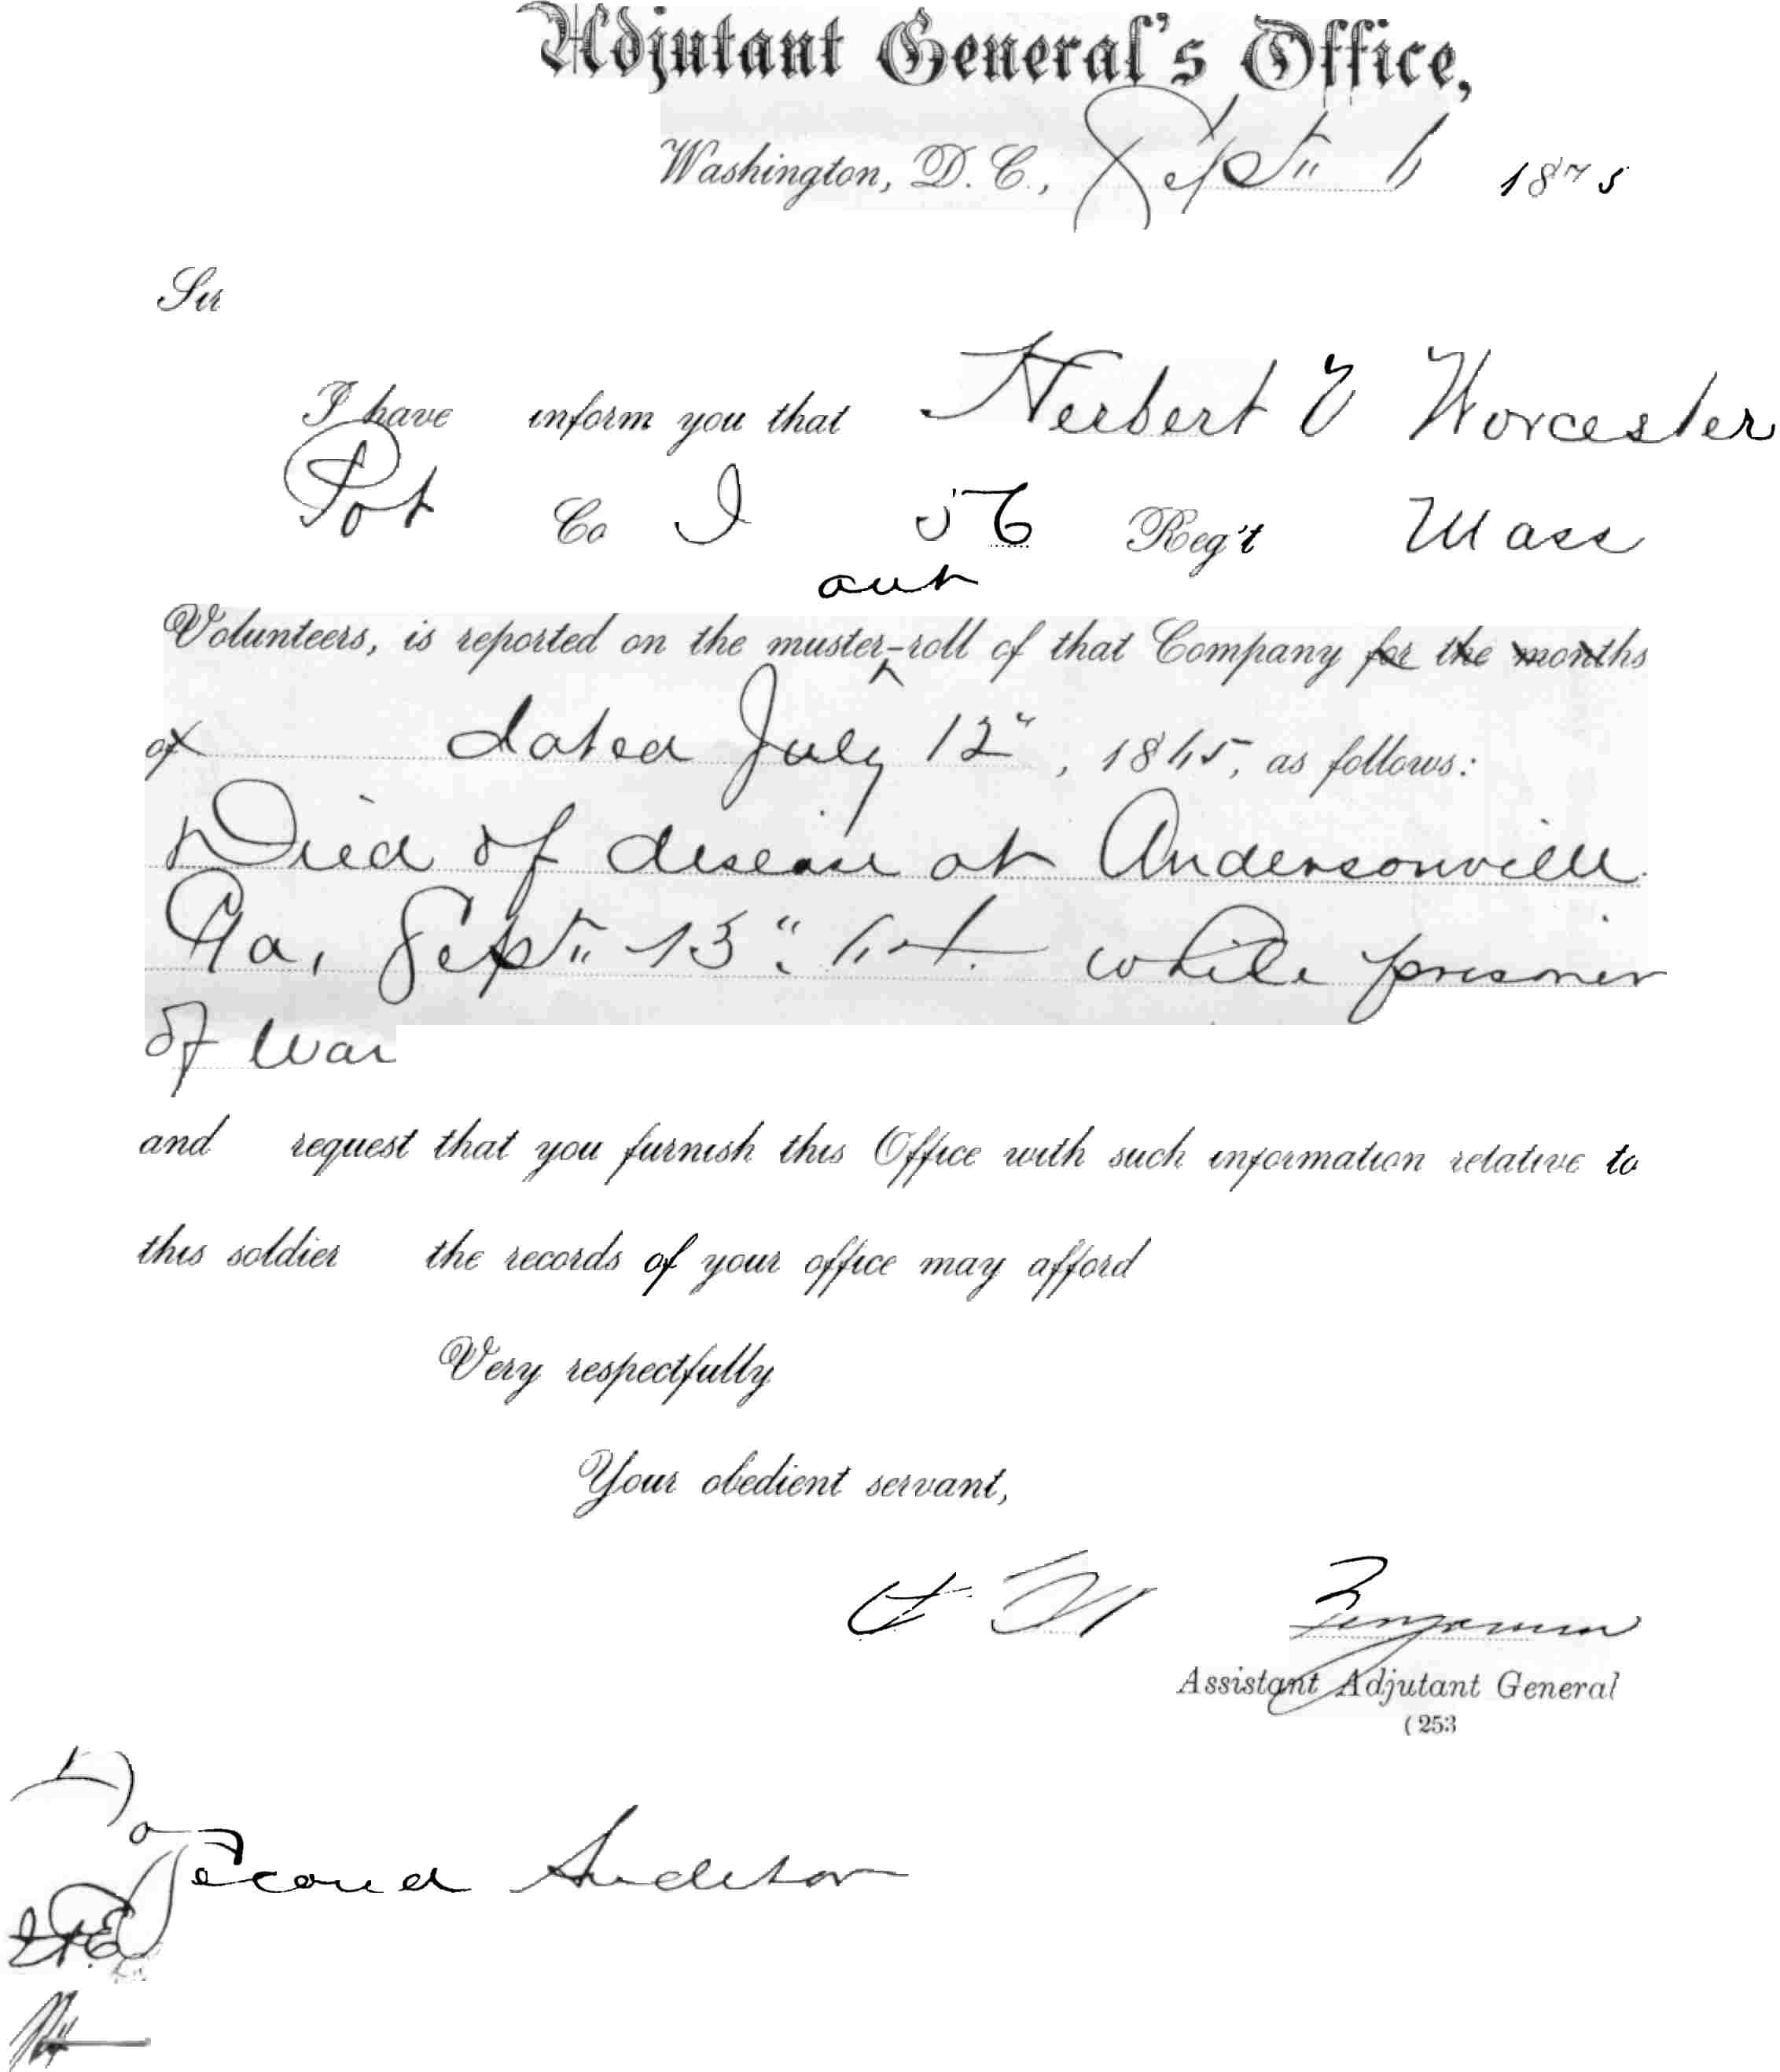 Adjutant General's Office,
Washington, D. C., Sept" 6 1875
Sir
I have inform you that Herbert E Worcester
Pvt Co I 56 Reg't Mass
out
Volunteers, is reported on the muster-roll of that Company for the months
of dated July 12", 1865, as follows:
Died of disease at Andersonville
Ga, Sept" 13", 64. while prisoner
of War
and request that you furnish this Office with such information relative to
this soldier the records of your office may afford
Very respectfully
Your obedient servant,
Benjamin
Assistant Adjutant General
(253
To
Second Auditor